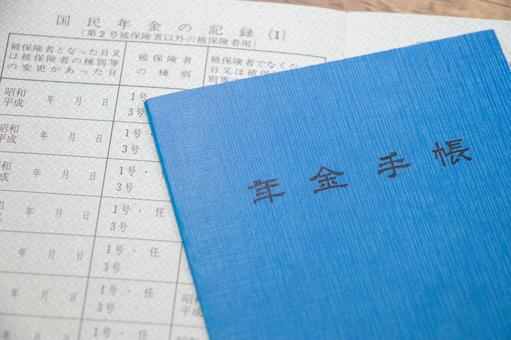 国民年金の記録(1)
(第2号被保険者以外の被保険者用)
被保険者となった日又は被保険者の種別等の変更があった日
被保険者の種別
被保険者でなく
日又は
種別
昭和
平成 年 月 日
1号・
3号
昭和
平成 年 月 日
1号・
3号
年 月 日
1号・
3号
年 月 日
1号・任
3号
年 月 日
1号・任
3号
年 月 日
1号・任
3号
年 月 日
1号・任
年金手帳